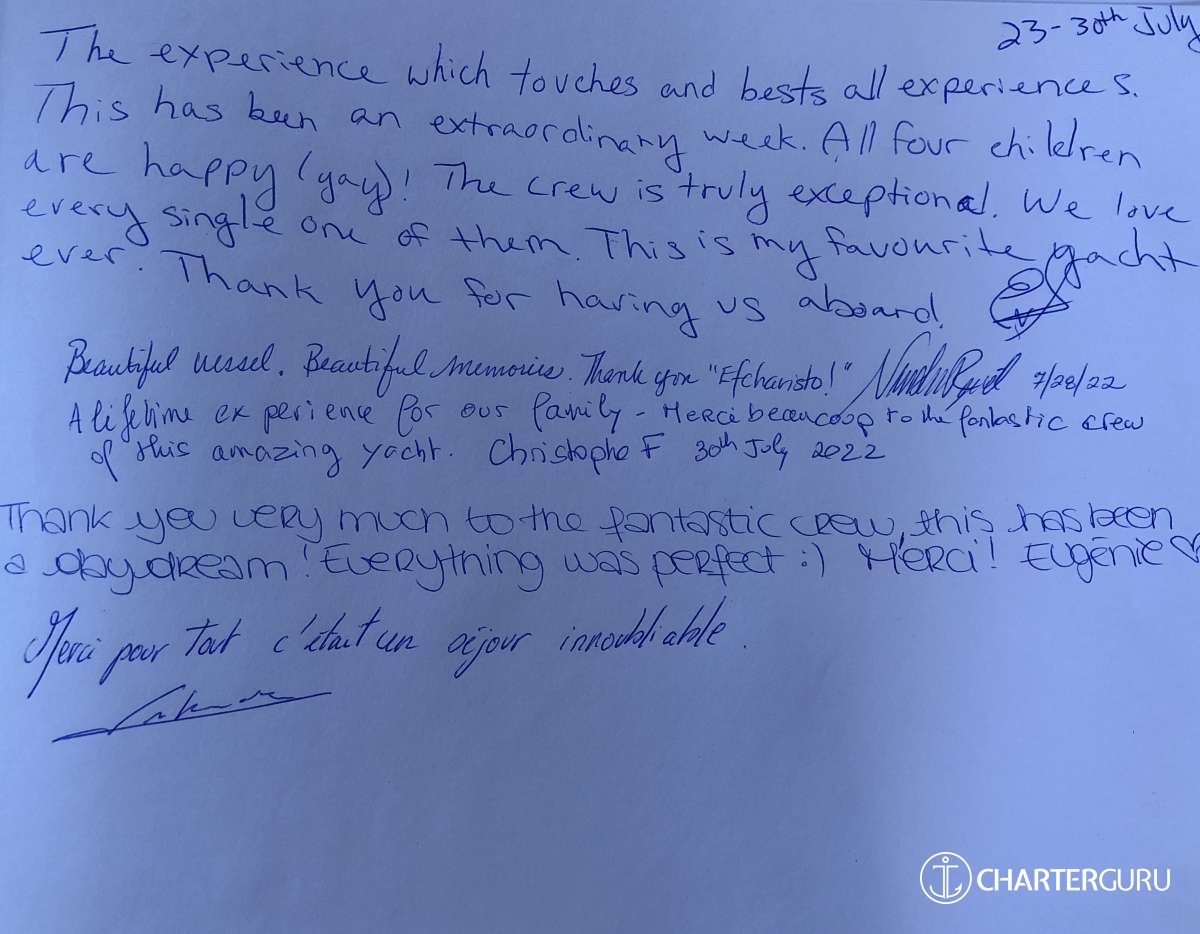 23-30th July
The experience which touches and bests all experiences.
This has been an extraordinary week. All four children
are happy (yay)! The crew is truly exceptional. We love
every single one of them. This is my favourite yacht
ever. Thank you for having us aboard.
Beautiful vessel. Beautiful memories. Thank you "Efcharisto!" 7/28/22
A lifetime experience for our family - Merci beaucoup to the fantastic crew
of this amazing yacht. Christophe F 30th July 2022
Thank you very much to the fantastic crew, this has been
a daydream! Everything was perfect :) Merci! Eugénie ♡
Merci pour tout c'était un séjour innoubliable.
CHARTERGURU